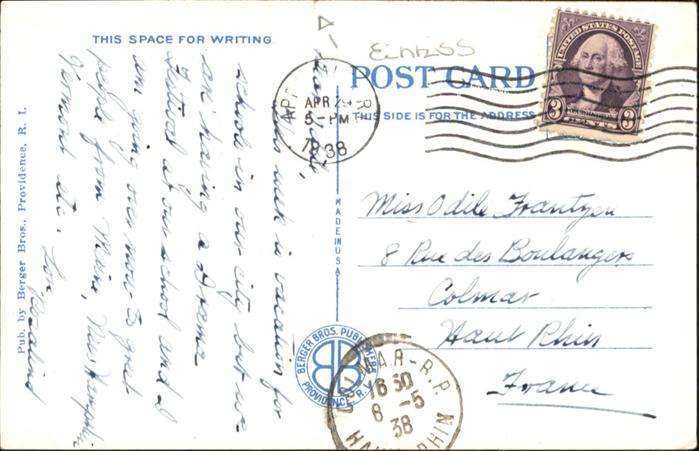 THIS SPACE FOR WRITING
This week is vacation for
school in our city but we
are having a Drama
Festival at our school and I
am going over now to greet
people from Maine, New Hampshire
Vermont etc. Love, Rosalind
Pub. by Berger Bros., Providence, R. I.
MADE IN U.S.A.
BERGER BROS. PUBLISHERS
BB
PROVIDENCE, R.I.
POST CARD
THIS SIDE IS FOR THE ADDRESS
APR 29
5-PM
1938
UNITED STATES POSTAGE
3 3
Miss Odile Frantzen
8 Rue des Boulangers
Colmar
Haut Rhin
France
COLMAR-R.P.
16 30
6-5
38
HAUT-RHIN